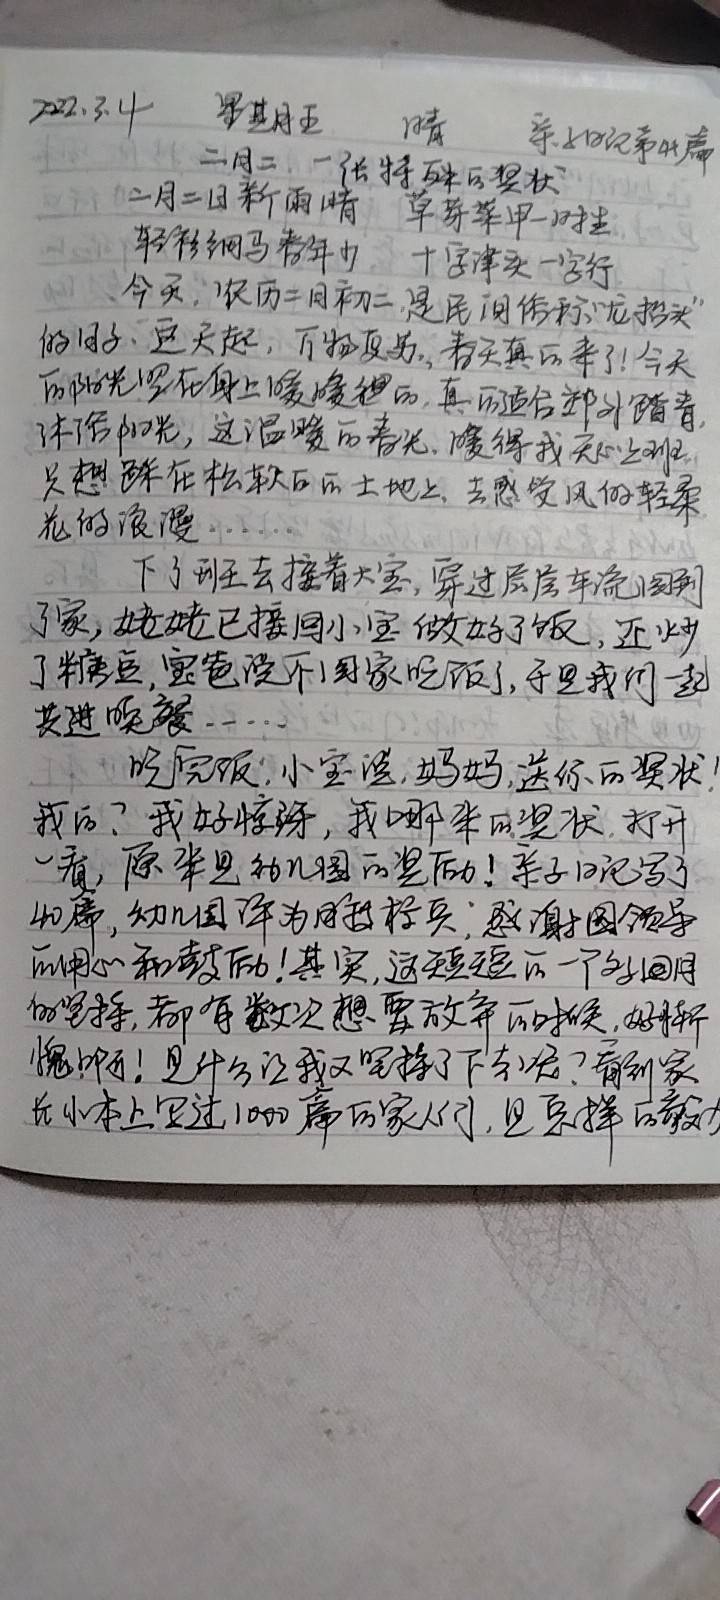 2022.3.4 星期五 晴 亲子日记第 篇
二月二 一张特殊的奖状
二月二日新雨晴 草芽菜甲一时生
轻衫细马春年少 十字津头一字行
今天,农历二月初二,是民间俗称“龙抬头”
的日子、这天起,万物复苏,春天真的来了!今天
的阳光照在身上暖暖的,真的适合郊外踏青,
沐浴阳光,这温暖的春光,暖得我无心上班
只想踩在松软的土地上、去感受风的轻柔
花的浪漫……
下了班去接着大宝,穿过层层车流回到
了家,姥姥已接回小宝做好了饭,还炒
了糖豆,宝爸说不回家吃饭了,于是我们一起
共进晚餐……
吃完饭,小宝说,妈妈,送你的奖状!
我的?我好惊讶,我哪来的奖状,打开
一看,原来是幼儿园的奖励!亲子日记写了
40篇,幼儿园评为 标兵,感谢园领导
的用心和鼓励!其实,这短短的一个多月
的坚持,都有数次想要放弃的时候,好惭
愧呀!是什么让我又坚持了下去呢?看到家
长小本上写过1000篇的家人们,是怎样的毅力